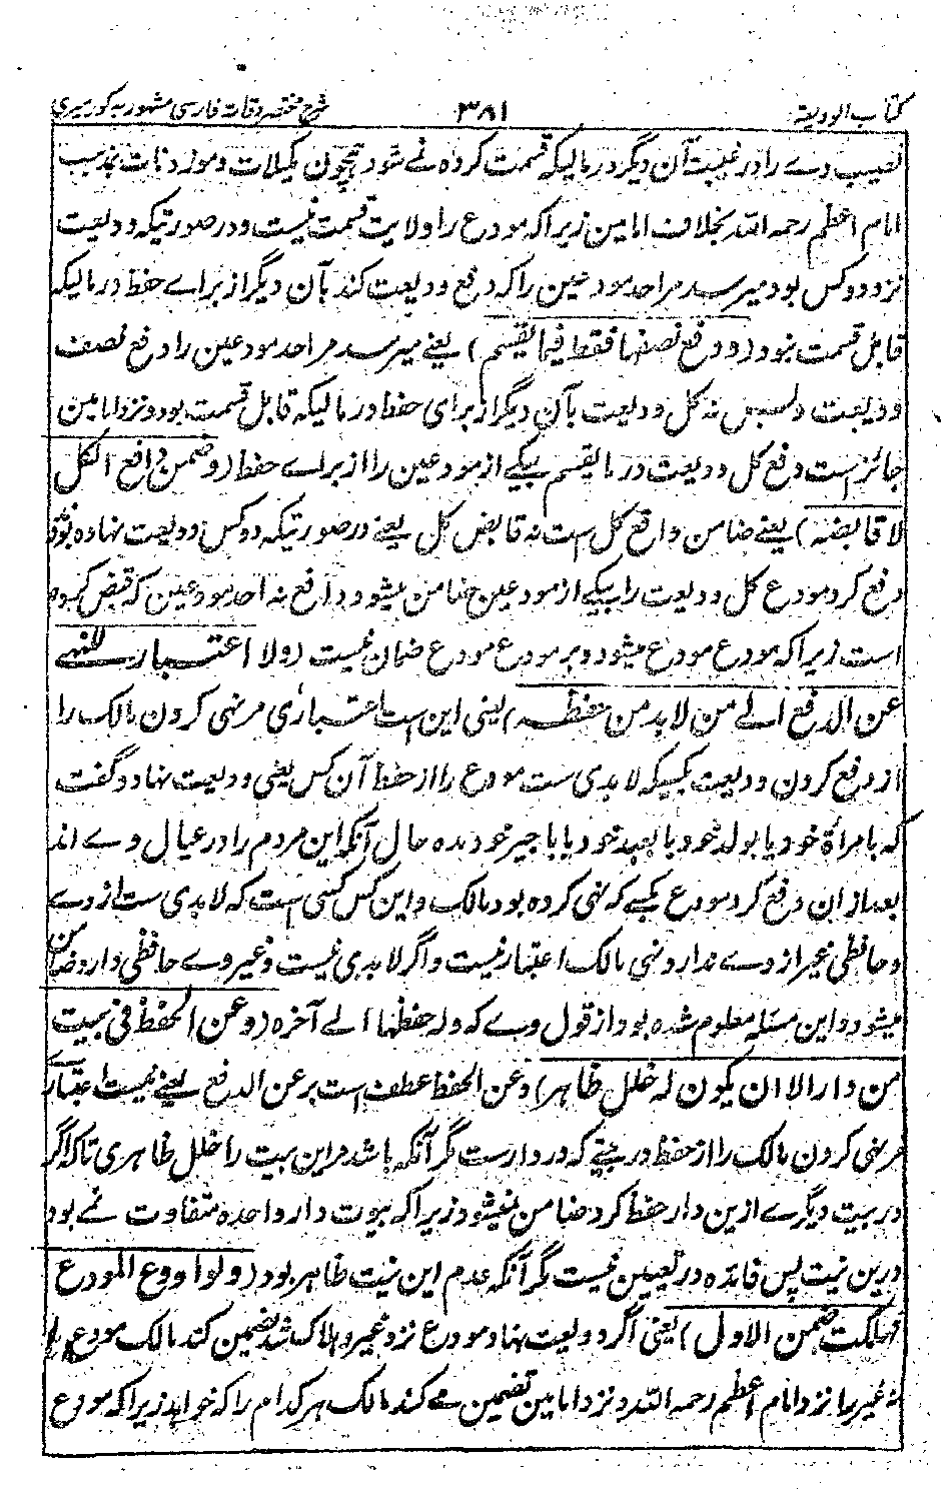 کتاب الودیعة ۳۸۱ شرح مختصر وقایه فارسی مشهور به کورمیری
نصیب وے را در غیبت آن دیگر در مالیکه قسمت کرده نے شود همچون مکیلات و موزونات بمذهب
امام اعظم رحمه الله بخلاف امامین زیراکه مودع را ولایت قسمت نیست و در صورتیکه ودیعت
نزد دو کس بود میرسد مر احد مودعین را که دفع ودیعت کند بآن دیگر از براے حفظ در مالیکه
قابل قسمت نبود (و دفع نصفها فقط فیما یقسم) یعنے میرسد مر احد مودعین را دفع نصف
ودیعت و بس نه کل ودیعت بآن دیگر از برای حفظ در مالیکه قابل قسمت بود و نزد امامین
جائز است دفع کل ودیعت در ما یقسم بیکے از مودعین را از براے حفظ (و ضمن دافع الکل
لا قابضه) یعنے ضامن دافع کل است نه قابض کل یعنے در صورتیکه دو کس ودیعت نهاده بود
دفع کرد مودع کل ودیعت را بیکے از مودعین ضامن میشود دافع نه احد مودعین که قبض کرده
است زیراکه مودع مودع میشود و بر مودع مودع ضمان نیست (ولا اعتبار للنهے
عن الدفع الے من لا بد من حفظه) یعنی نیست اعتباری مر نهی کردن مالک را
از دفع کردن ودیعت بکسیکه لابدی ست مودع را از حفظ آن کس یعنی ودیعت نهاد و گفت
که بامرأة خود یا بولد خود یا بعبد خود یا باجیر خود مده حال آنکه این مردم را در عیال وے اند
بعد ازان دفع کرد مودع بکسے که نهی کرده بود مالک و این کس کسی است که لابدی ست از وے
و حافظی غیر از وے ندارد نهی مالک اعتبار نیست و اگر لابدی نیست و غیر وے حافظی دارد ضامن
میشود و این مسئله معلوم شده بود از قول وے که وله حفظها الے آخره (و عن الحفظ فی بیت
من دار الا ان یکون له خلل ظاهر) و عن الحفظ عطف است بر عن الدفع یعنے نیست اعتبارے
مر نهی کردن مالک را از حفظ در بیتے که در دار ست مگر آنکه باشد مر این بیت را خلل ظاهری تا که اگر
در بیت دیگرے ازین دار حفظ کرد ضامن نمیشود زیراکه بیوت دار واحده متفاوت نے بود
درین نیت پس فائده در تعیین نیست مگر آنکه عدم این نیت ظاهر بود (ولو اودع المودع
فهلکت ضمن الاول) یعنی اگر ودیعت نهاد مودع نزد غیر و هلاک شد تضمین کند مالک مودع را
نه غیر را نزد امام اعظم رحمه الله و نزد امامین تضمین مے کند مالک هر کدام را که خواهد زیراکه مودع